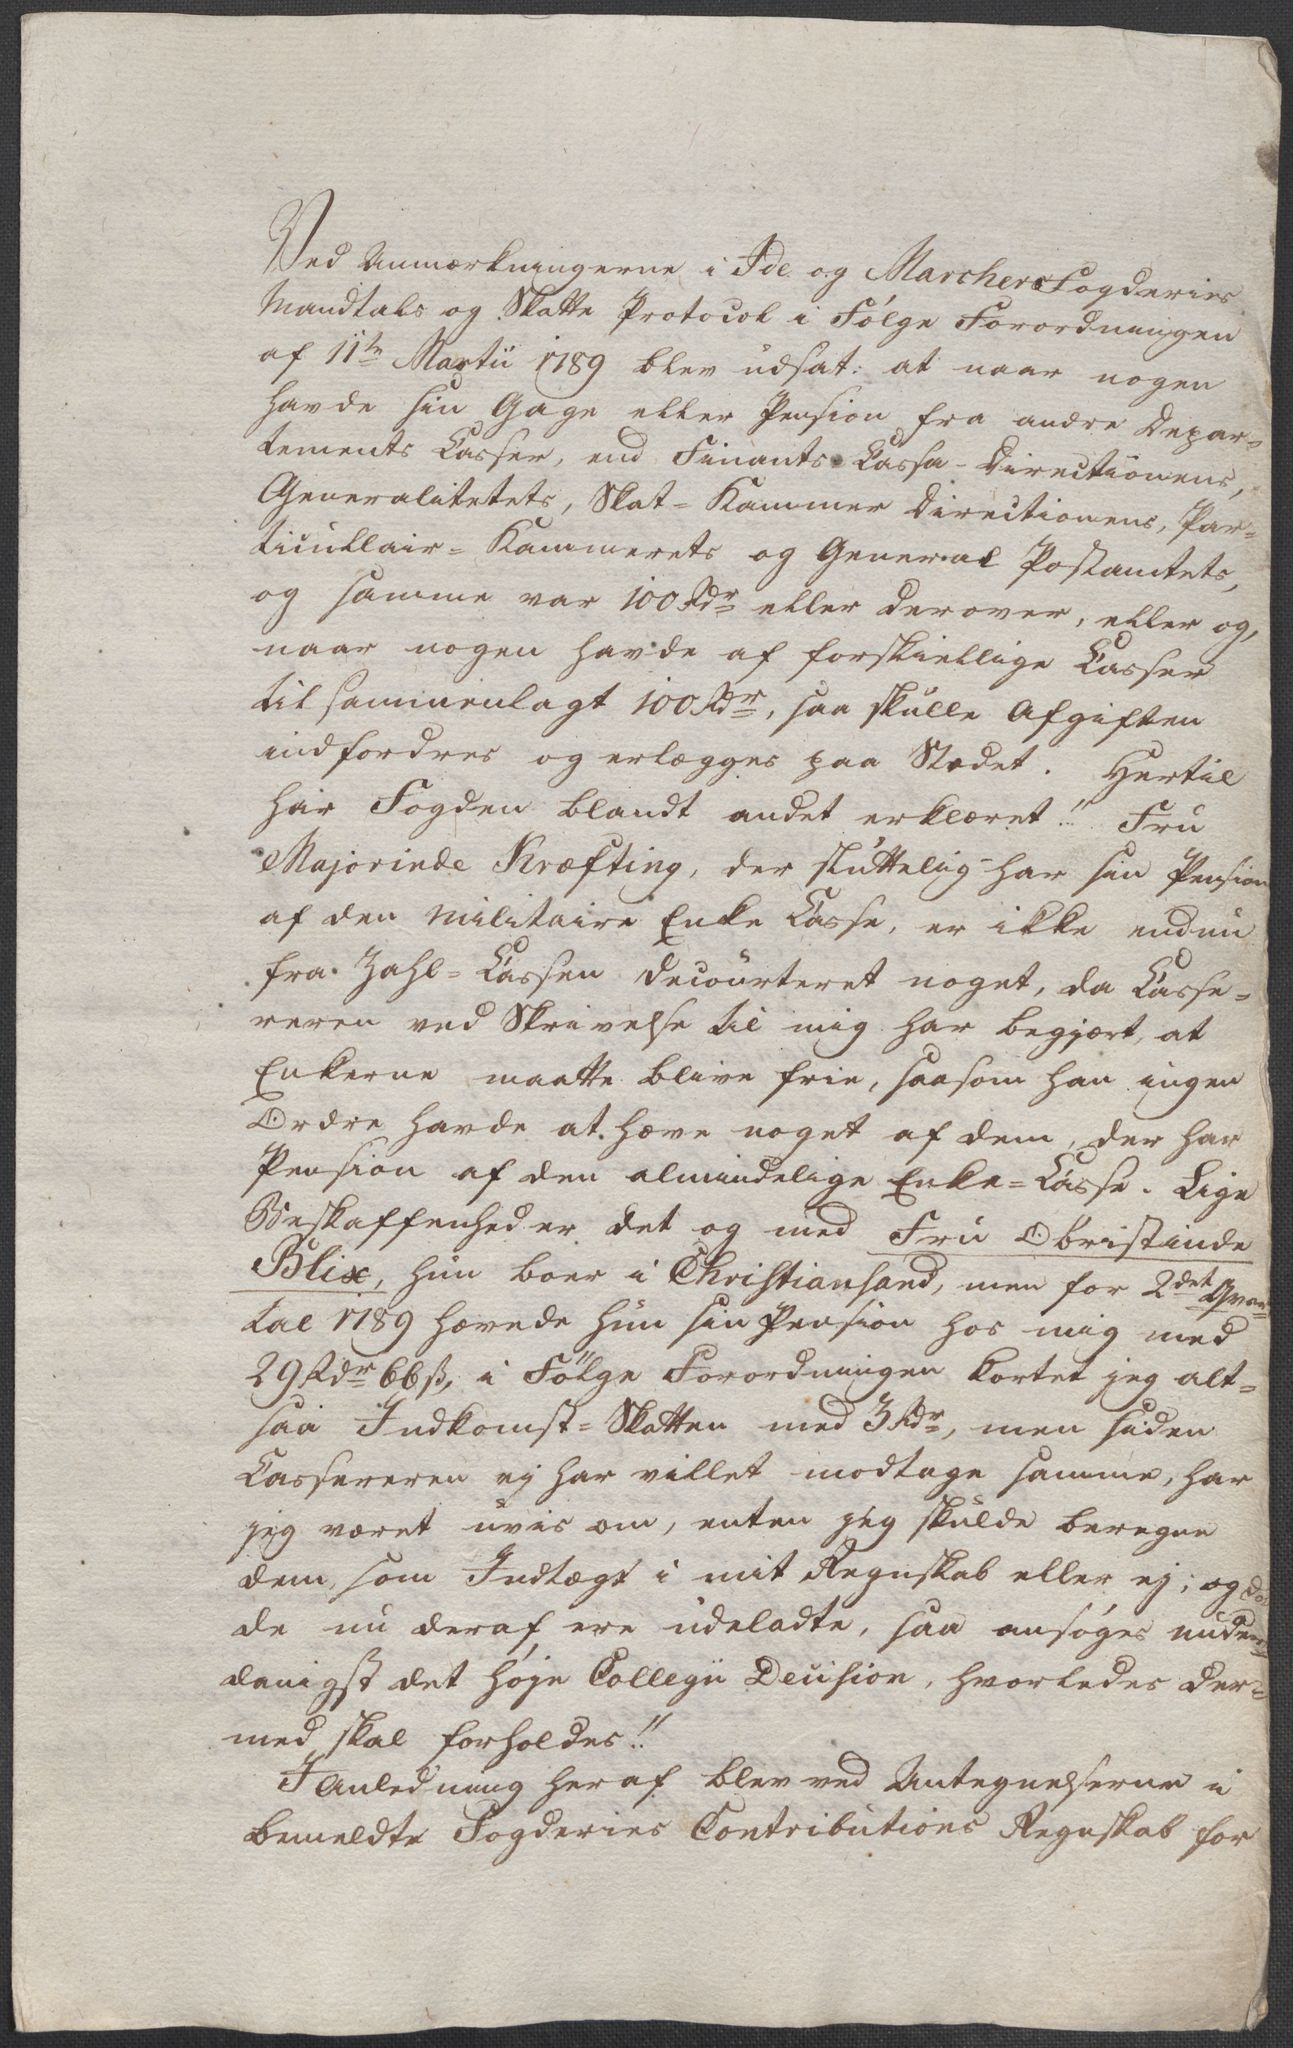 Ved Anmærkningerne i Ide og Marchers Fogderies
Mandtals og Skatte Protocol i Følge Forordningen
af 11te Martii 1789 blev udsat: at naar nogen
havde sin Gage eller Pension fra andre Depar=
tements Casser, end Finants Cassa-Directionens,
Generalitetets, Skat=Kammer Directionens, Par=
ticullair=Kammerets og General Postamtets,
og samme var 100 Rdr eller derover, eller og,
naar nogen havde af forskiellige Casser
tilsammenlagt 100 Rdr, saa skulle Afgiften
indfordres og erlægges paa Stædet. Hertil
har Fogden blandt andet erklæret:" Fru
Majorinde Kræfting, der sluttelig har sin Pension
af den militaire Enke Casse, er ikke endnu
fra Zahl=Cassen decourteret noget, da Casse=
reren ved Skrivelse til mig har begjært, at
Enkerne maatte blive frie, saasom han ingen
Ordre havde at hæve noget af dem, der har
Pension af den almindelige Enke=Casse. Lige
Beskaffenhed er det og med Fru Obristinde
Blix, hun boer i Christiansand, men for 2det Qvar=
tal 1789 hævede hun sin Pension hos mig med
29 Rdr 66 ß, i Følge Forordningen kortet jeg alt=
saa Indkomst=Skatten med 3 Rdr, men siden
Cassereren ej har villet modtage samme, har
jeg været uvis om, enten jeg skulde beregne
dem, som Indtægt i mit Regnskab eller ej; og da
de nu deraf ere udeladte, saa ansøges under=
danigst det høje Collegii Decision, hvorledes der=
med skal forholdes!"
I Anledning heraf blev ved Antegnelserne i
bemeldte Fogderies Contributions Regnskab for